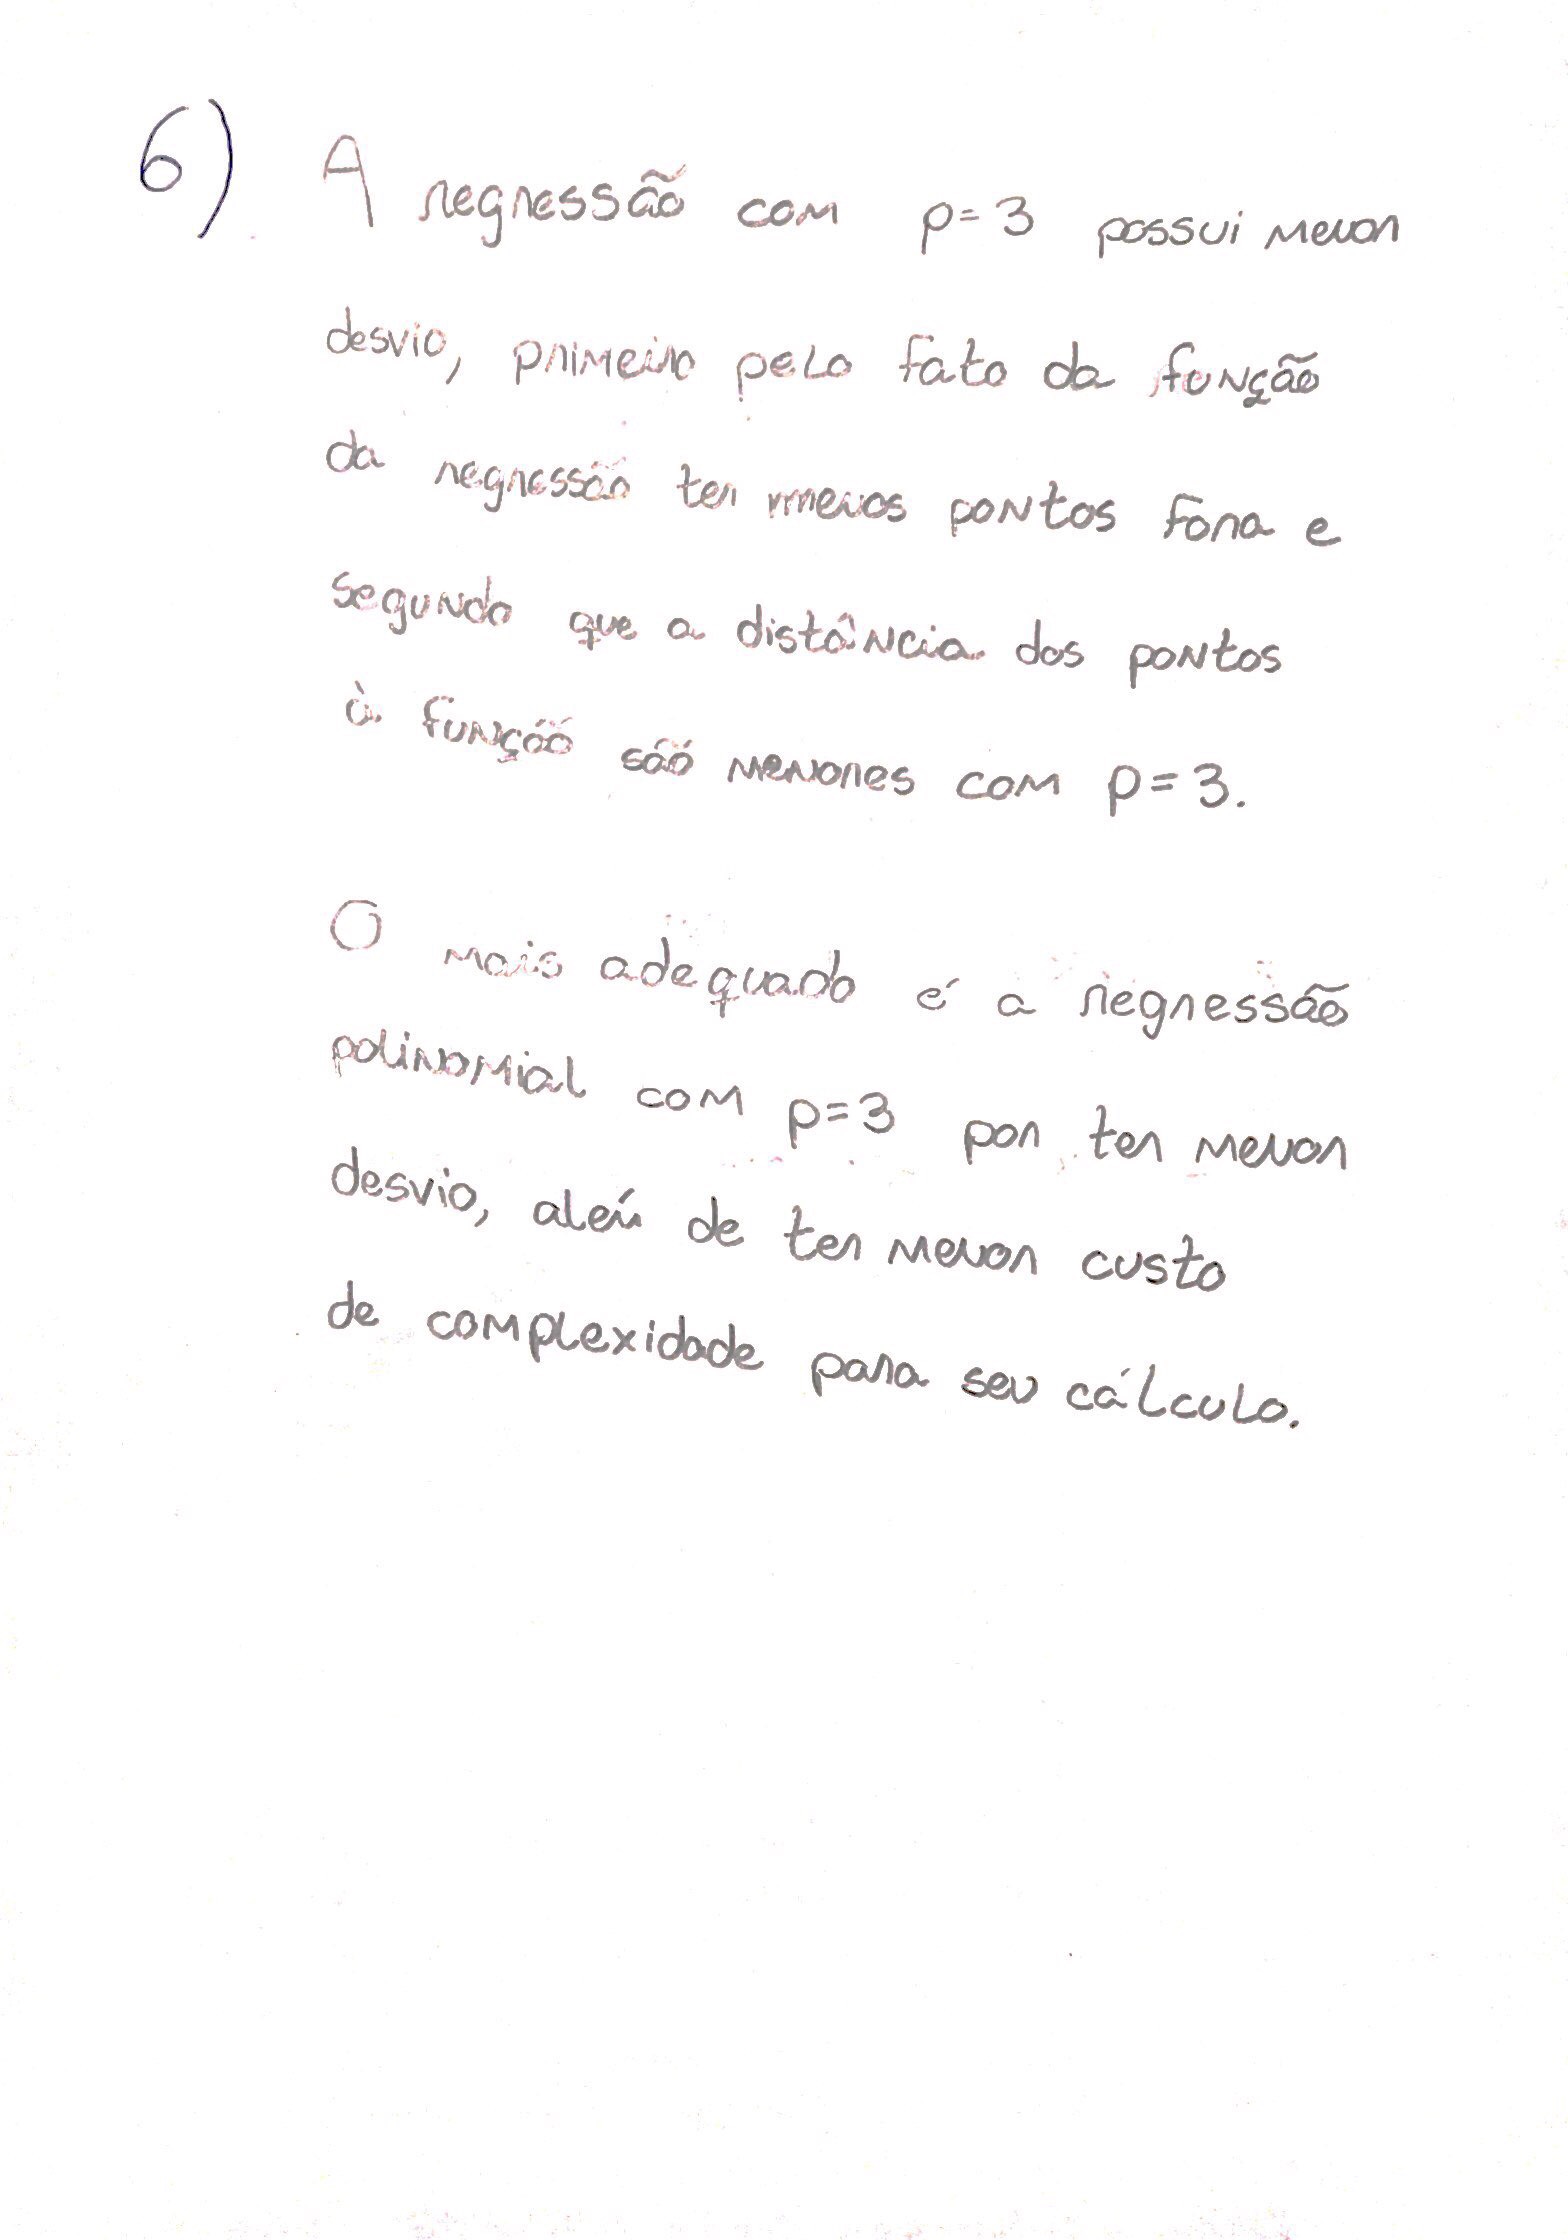 6) A regressão com p=3 possui menor
desvio, primeiro pelo fato da função
da regressão ter menos pontos fora e
segundo que a distância dos pontos
à função são menores com p=3.
O mais adequado é a regressão
polinomial com p=3 por ter menor
desvio, além de ter menor custo
de complexidade para seu cálculo.